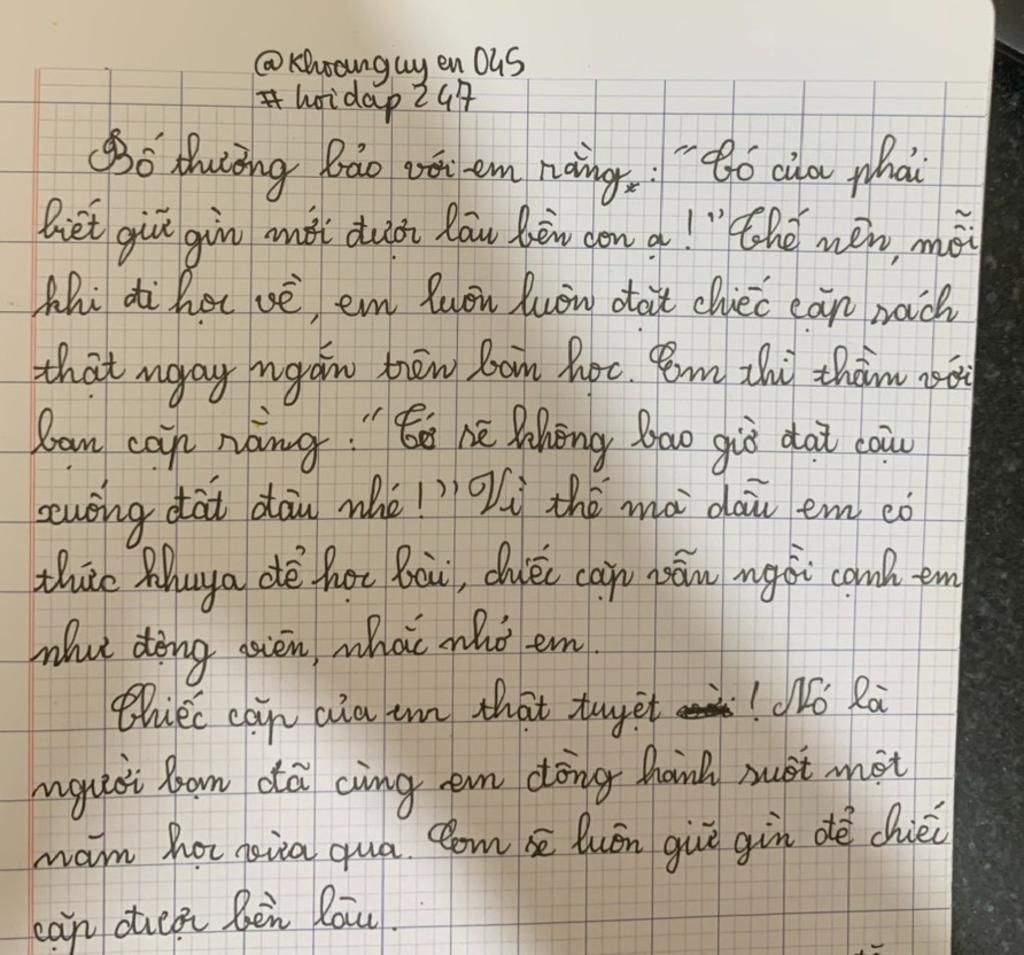 @Khoanguyen045
# hoidap247
Bố thường bảo với em rằng: "Có của phải
biết giữ gìn mới được lâu bền con ạ!" Thế nên, mỗi
khi đi học về, em luôn luôn đặt chiếc cặp sách
thật ngay ngắn trên bàn học. Em thì thầm với
bạn cặp rằng: "Tớ sẽ không bao giờ đặt cậu
xuống đất đâu nhé!" Vì thế mà dẫu em có
thức khuya để học bài, chiếc cặp vẫn ngồi cạnh em
như động viên, nhắc nhở em.
Chiếc cặp của em thật tuyệt ! Nó là
người bạn đã cùng em đồng hành suốt một
năm học vừa qua. Em sẽ luôn giữ gìn để chiếc
cặp được bền lâu.